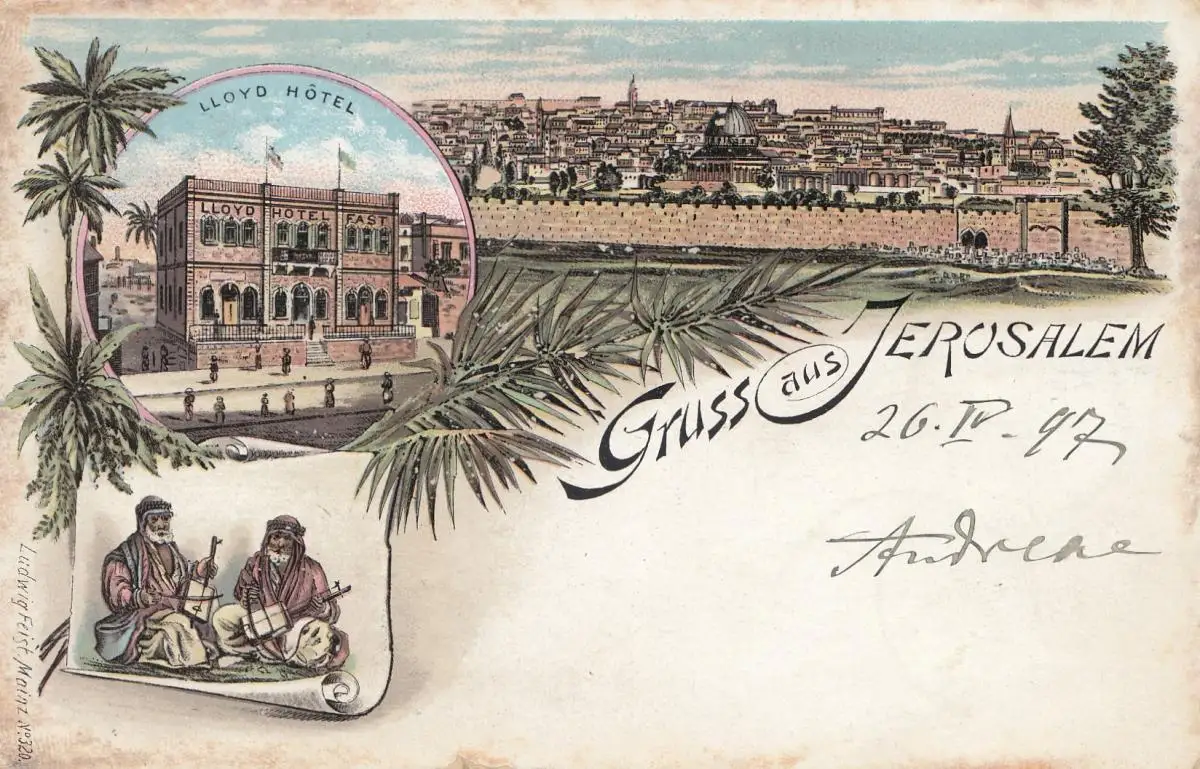 LLOYD HÔTEL
LLOYD HOTEL FAST
Gruss aus JERUSALEM
26. IV. 97
Andreae
Ludwig Feist, Mainz No 320.